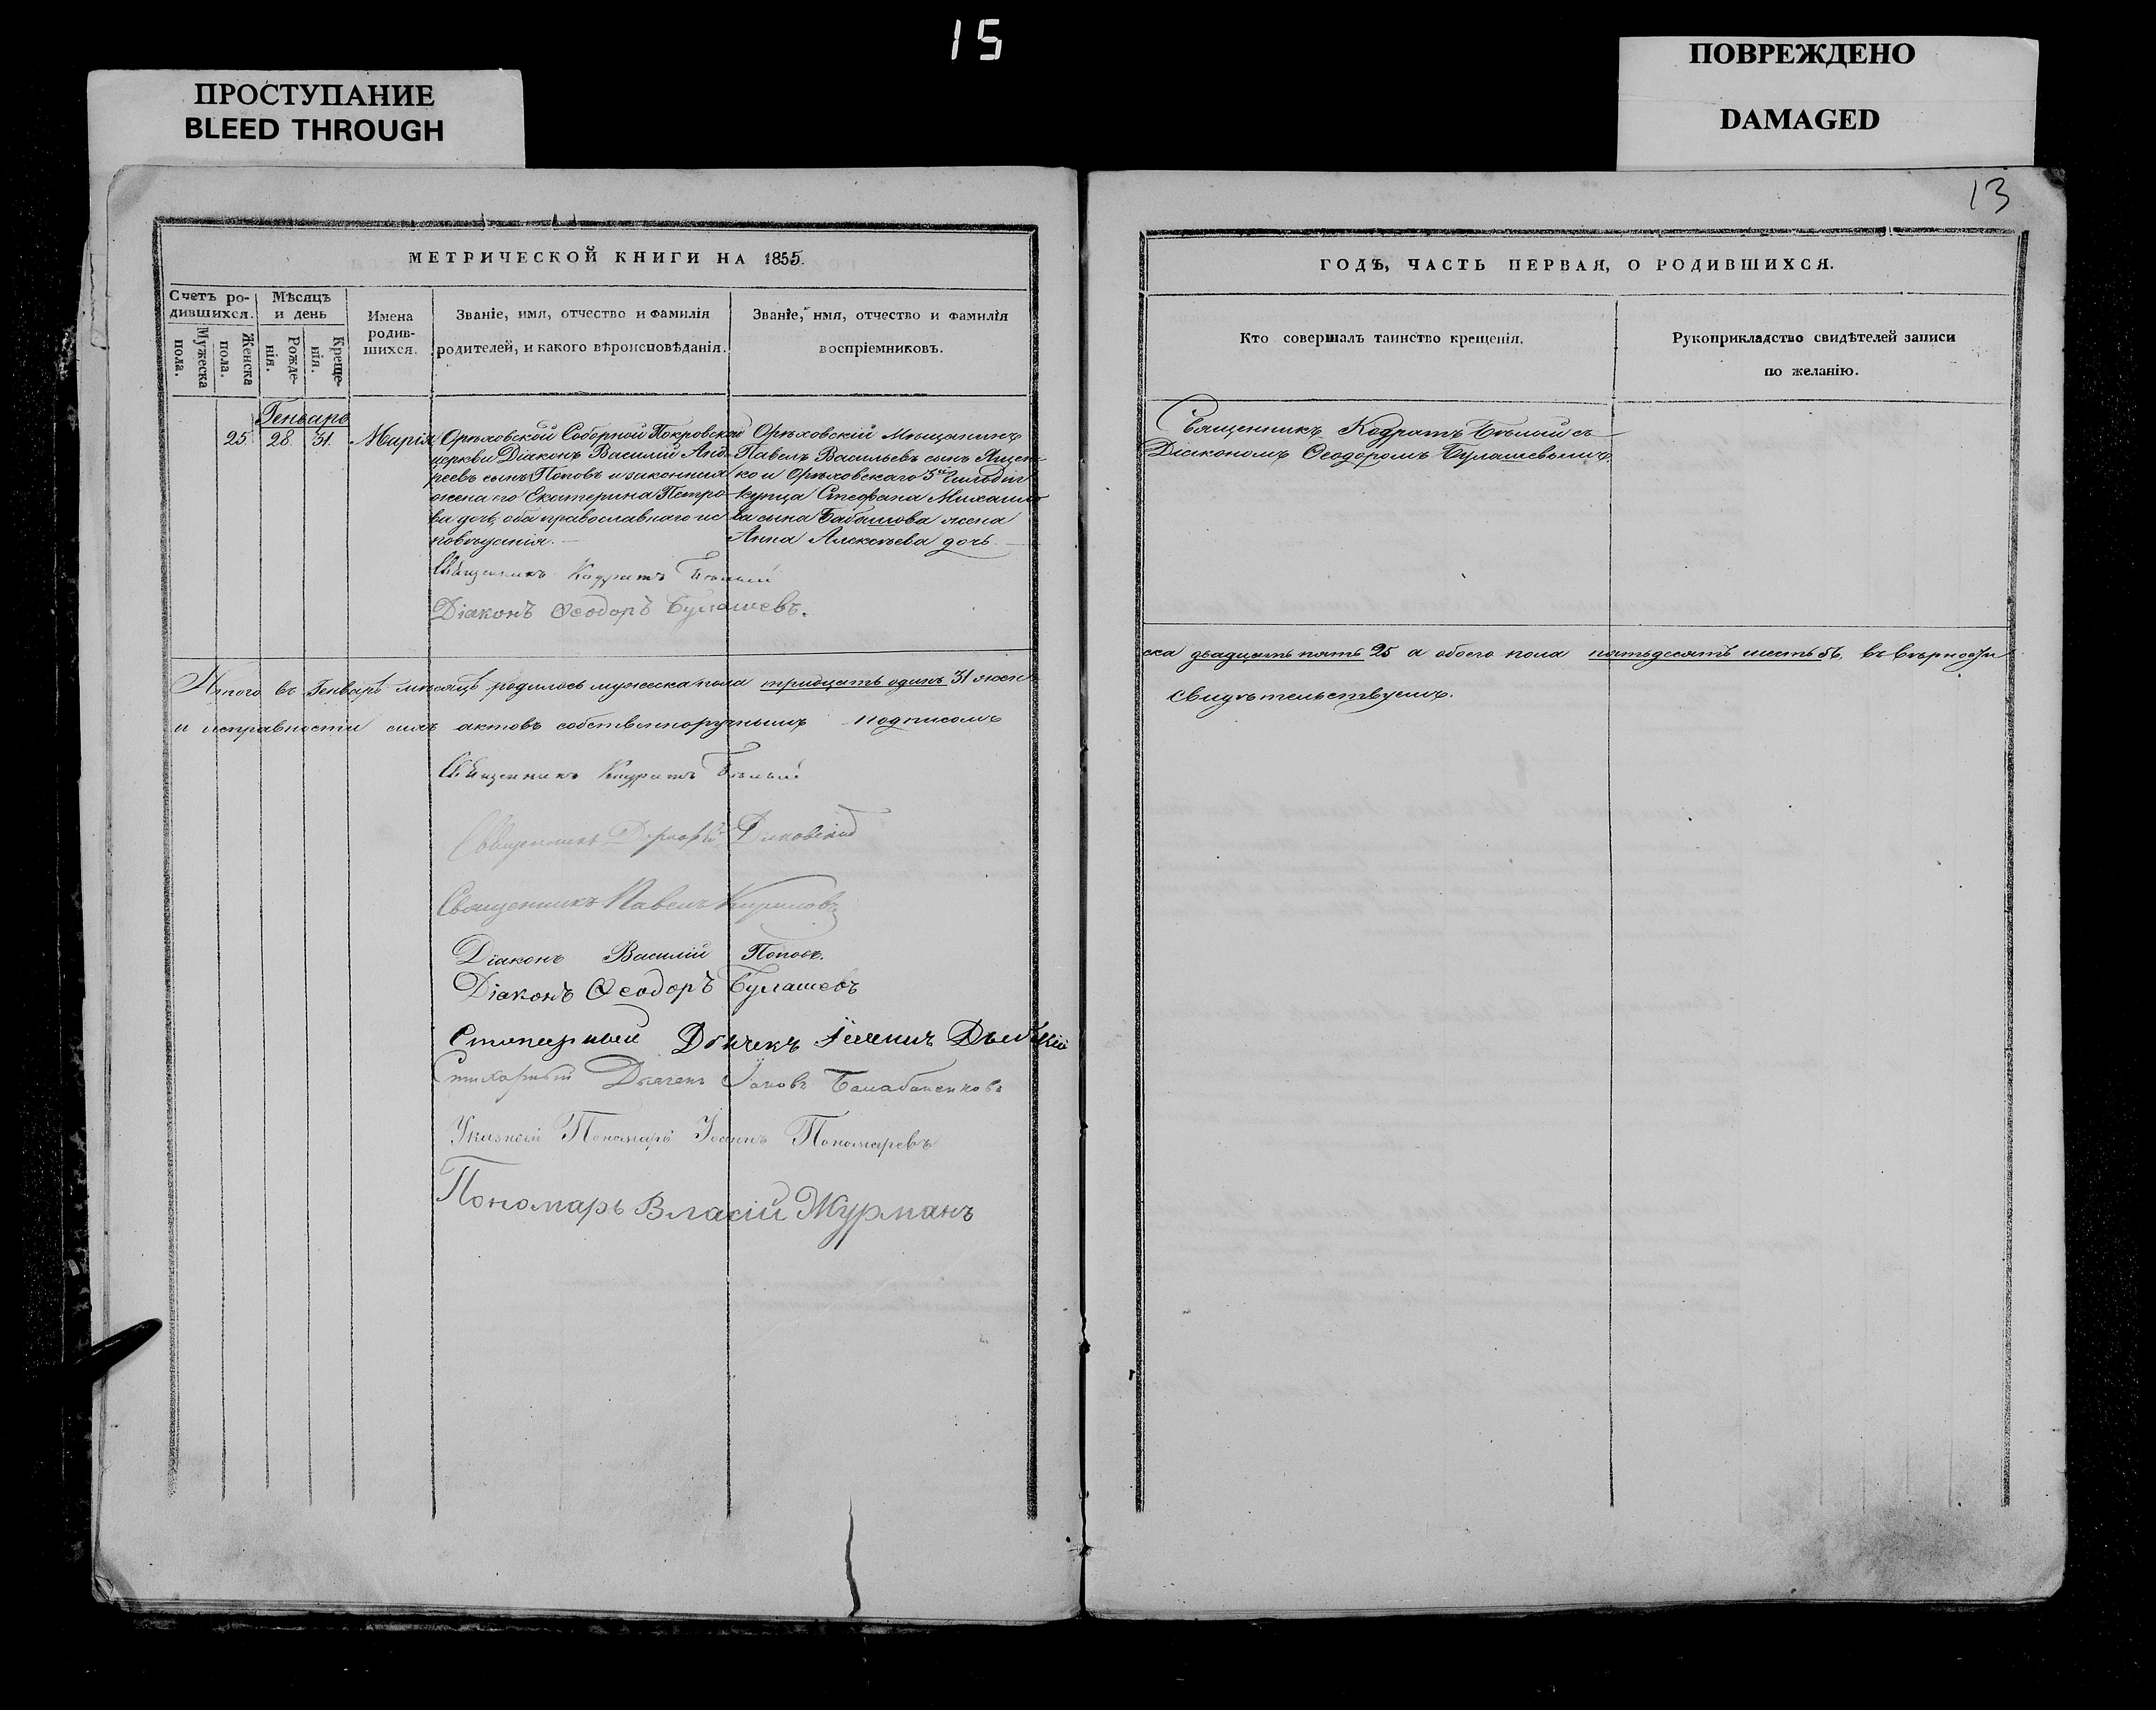 15
ПРОСТУПАНИЕ
BLEED THROUGH
ПОВРЕЖДЕНО
DAMAGED
13
МЕТРИЧЕСКОЙ КНИГИ НА 1855.
Счетъ ро-
дившихся.
Мужеска
пола.
Женска
пола.
Мѣсяцъ
и день
Рожде-
нія.
Креще-
нія.
Имена
родив-
шихся.
Званіе, имя, отчество и фамилія
родителей, и какого вѣроисповѣданія.
Званіе, имя, отчество и фамилія
воспріемниковъ.
Генварь
25. 28. 31. Марія
Орѣховской Соборной Покровской
церкви Діаконъ Василій Анд-
реевъ сынъ Поповъ и законная
жена его Екатерина Петро-
ва дочь, оба православнаго ис
повѣданія.
Орѣховскій Мѣщанинъ
Павелъ Васильевъ сынъ Ящен-
ко и Орѣховскаго 3й Гильдіи
купца Стефана Михайло
ва сына Бабашова жена
Анна Алексѣева дочь
Священникъ Кодратъ Бѣлый
Діаконъ Ѳеодоръ Булашевъ.
Итого въ Генварѣ мѣсяцѣ родилось мужеска пола тридцать одинъ 31 женъ
и исправности сихъ актовъ собственноручнымъ подписомъ
Священникъ Кодратъ Бѣлый
Священникъ
Священникъ Павелъ Кириловъ
Діаконъ Василій Поповъ.
Діаконъ Ѳеодоръ Булашевъ
Стихарный Дьячекъ
Стихарный Дьячекъ Іаковъ Балабаненковъ
Указный Пономарь Іоаннъ Пономаревъ
Пономарь Власій Журманъ
ГОДЪ, ЧАСТЬ ПЕРВАЯ, О РОДИВШИХСЯ.
Кто совершалъ таинство крещенія.
Рукоприкладство свидѣтелей записи
по желанію.
Священникъ Кодратъ Бѣлый съ
Діакономъ Ѳеодоромъ Булашевымъ.
ска двадцать пять 25 а обоего пола пятьдесятъ шесть 56, въ вѣрности
свидѣтельствуемъ.